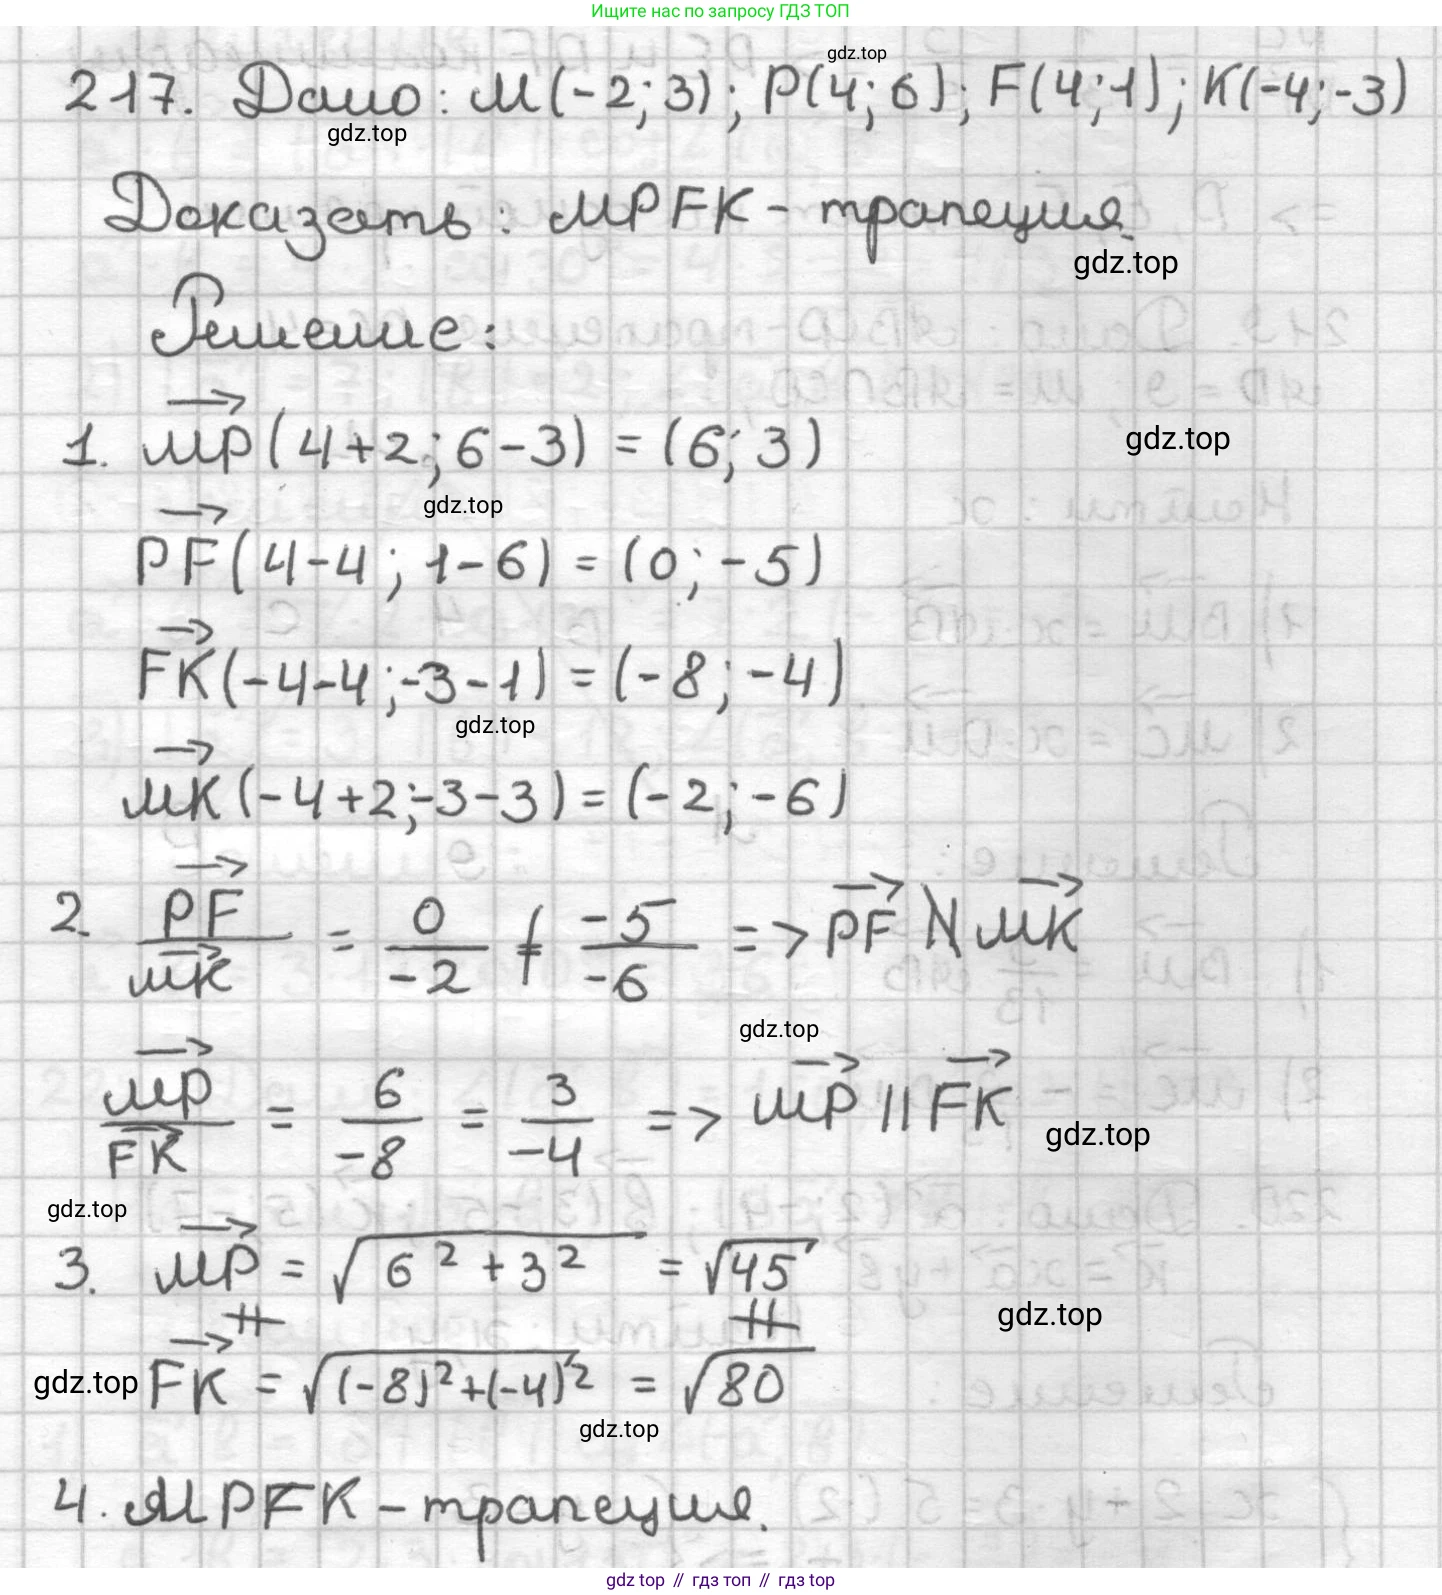 Ищите нас по запросу ГДЗ ТОП
gdz.top
217. Дано: М(-2; 3); P(4; 6); F(4; 1); K(-4; -3)
gdz.top
Доказать: MPFK - трапеция.
gdz.top
Решение:
1. MP(4+2; 6-3) = (6; 3)
gdz.top
gdz.top
PF(4-4; 1-6) = (0; -5)
FK(-4-4; -3-1) = (-8; -4)
gdz.top
MK(-4+2; -3-3) = (-2; -6)
2. PF/MK = 0/-2 ≠ -5/-6 => PF ∦ MK
gdz.top
MP/FK = 6/-8 = 3/-4 => MP || FK
gdz.top
gdz.top
3. MP = √(6² + 3²) = √45
≠ ≠
gdz.top
gdz.top FK = √((-8)²+(-4)²) = √80
gdz.top
4. MPFK - трапеция.
gdz top // гдз топ // гдз top